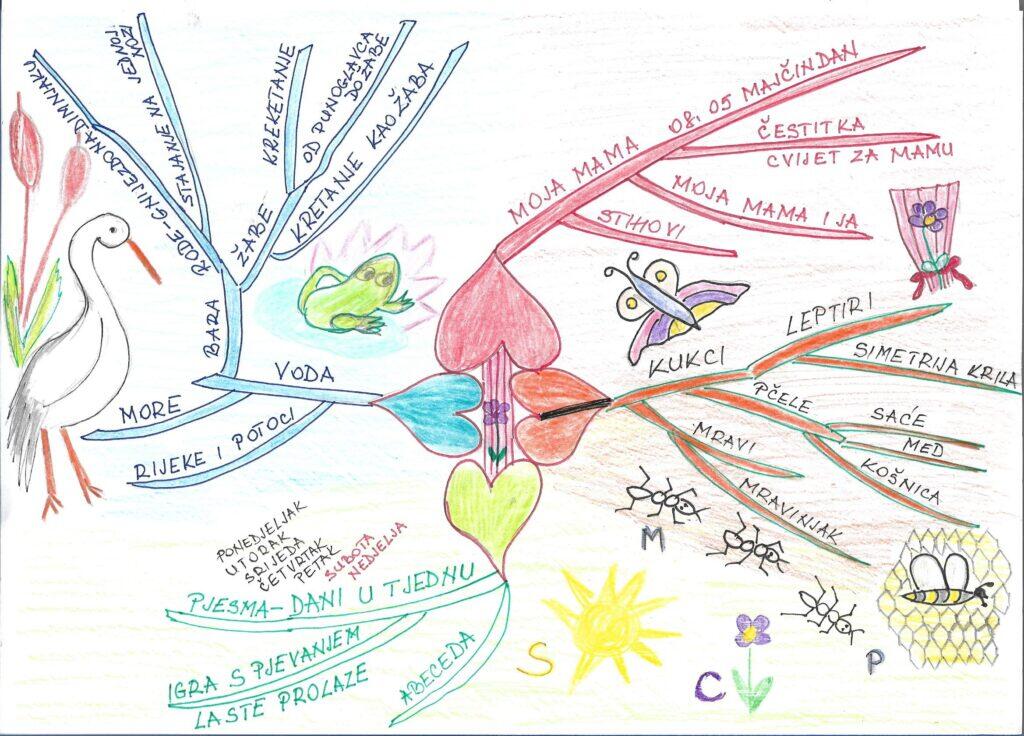 RODE-GNIJEZDO NA DIMNJAKU
STAJANJE NA JEDNOJ
NOZI
KREKETANJE
OD PUNOGLAVCA
DO ŽABE
KRETANJE KAO ŽABA
ŽABE
BARA
VODA
MORE
RIJEKE I POTOCI
MOJA MAMA 08.05 MAJČIN DAN
ČESTITKA
CVIJET ZA MAMU
MOJA MAMA I JA
STIHOVI
KUKCI
LEPTIRI
SIMETRIJA KRILA
PČELE
SAĆE
MED
KOŠNICA
MRAVI
MRAVINJAK
PONEDJELJAK
UTORAK
SRIJEDA
ČETVRTAK
PETAK
SUBOTA
NEDJELJA
PJESMA-DANI U TJEDNU
IGRA S PJEVANJEM
LASTE PROLAZE
ABECEDA
S
C
M
P